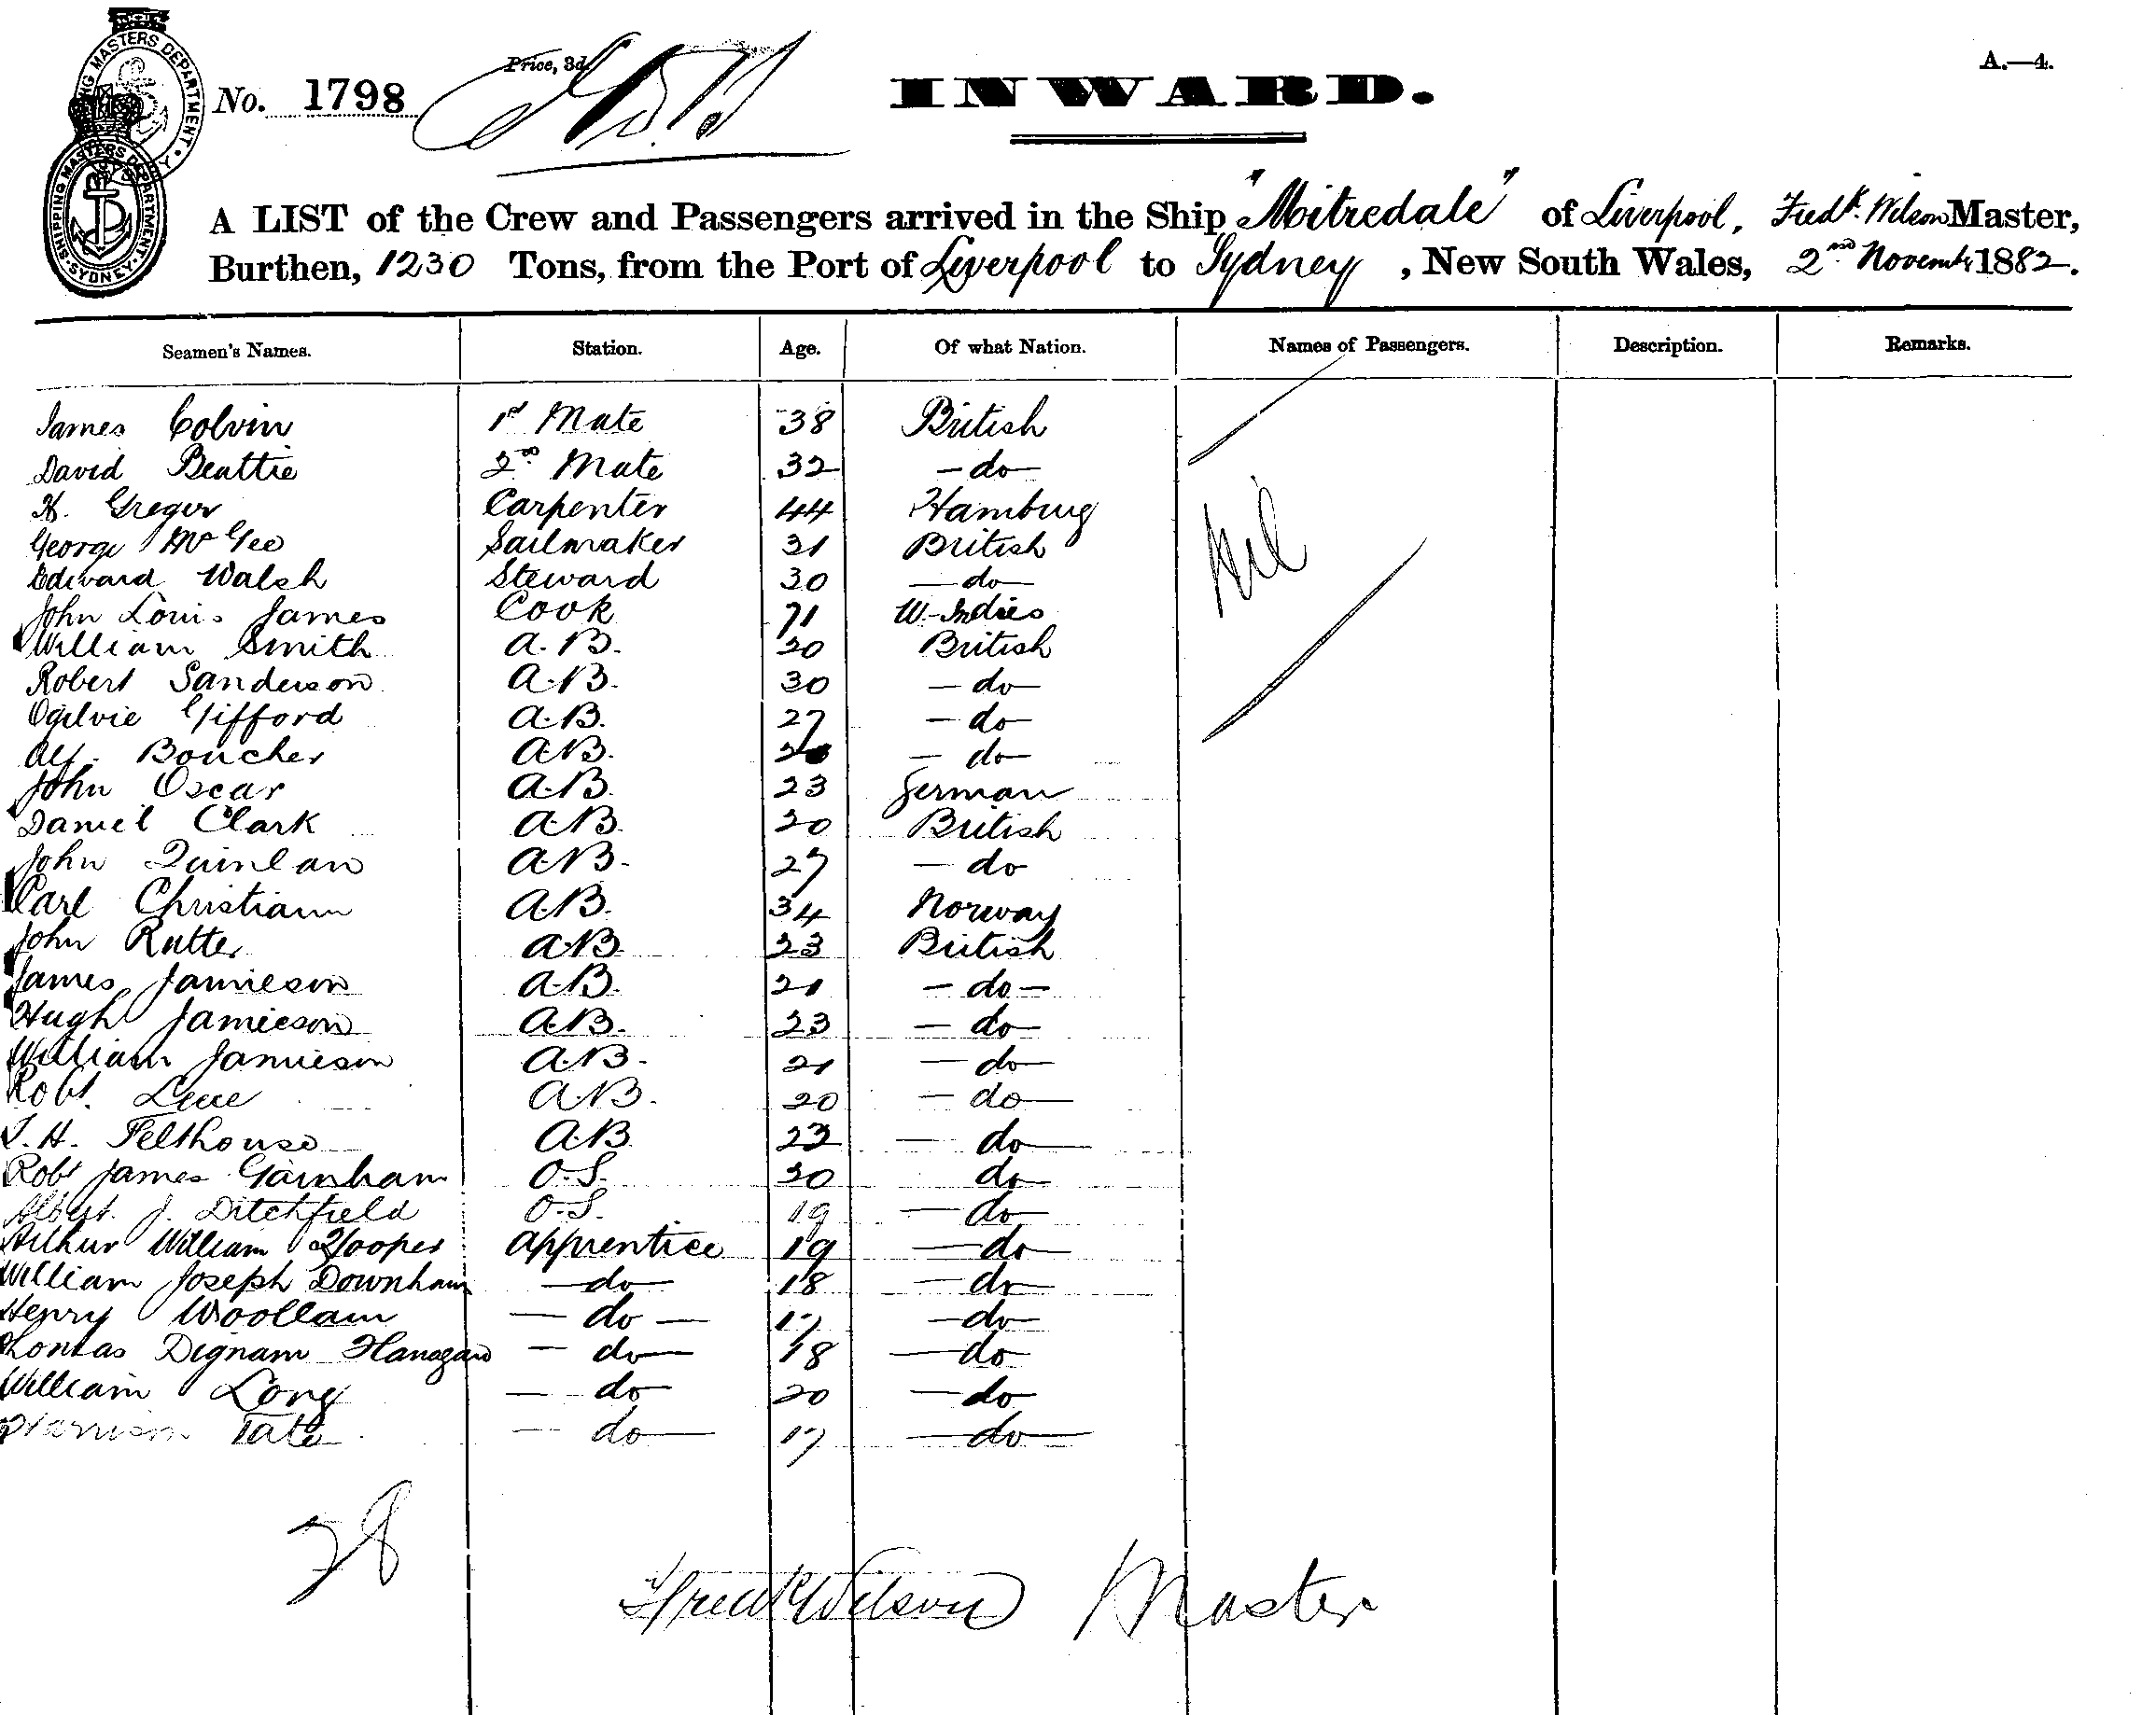 SHIPPING MASTERS DEPARTMENT · SYDNEY ·
No. 1798 Price, 3d. INWARD. A.—4.
A LIST of the Crew and Passengers arrived in the Ship "Mitredale" of Liverpool, Fredk. Wilson Master,
Burthen, 1230 Tons, from the Port of Liverpool to Sydney, New South Wales, 2nd November 1882.
Seamen's Names. Station. Age. Of what Nation. Names of Passengers. Description. Remarks.
James Colvin 1st Mate 38 British
David Beattie 2nd Mate 32 - do -
H. Gregor Carpenter 44 Hamburg
Nil
George McGee Sailmaker 31 British
Edward Walsh Steward 30 - do -
John Louis James Cook 71 W. Indies
William Smith A.B. 20 British
Robert Sanderson A.B. 30 - do -
Ogilvie Gifford A.B. 27 - do -
Alf. Boucher A.B. - do -
John Oscar A.B. 23 German
Daniel Clark A.B. 20 British
John Quinlan A.B. 27 - do
Carl Christiann A.B. 34 Norway
John Rutter A.B. 23 British
James Jamieson A.B. 21 - do -
Hugh Jamieson A.B. 23 - do -
William Jamieson A.B. 21 - do -
Robt. A.B. 20 - do -
T. H. Felthouse A.B. 23 - do -
Robt James Garnham O.S. 20 do
Albert J. Ditchfield O.S. 19 - do -
Arthur William Hooper apprentice 19 - do -
William Joseph Downham - do - 18 - do -
Henry Woollam - do - 17 - do -
Thomas Dignam Flanagan - do - 18 - do
William Long - do - 20 - do -
Harrison Tate - do - 17 - do -
28
Fredk Wilson Master